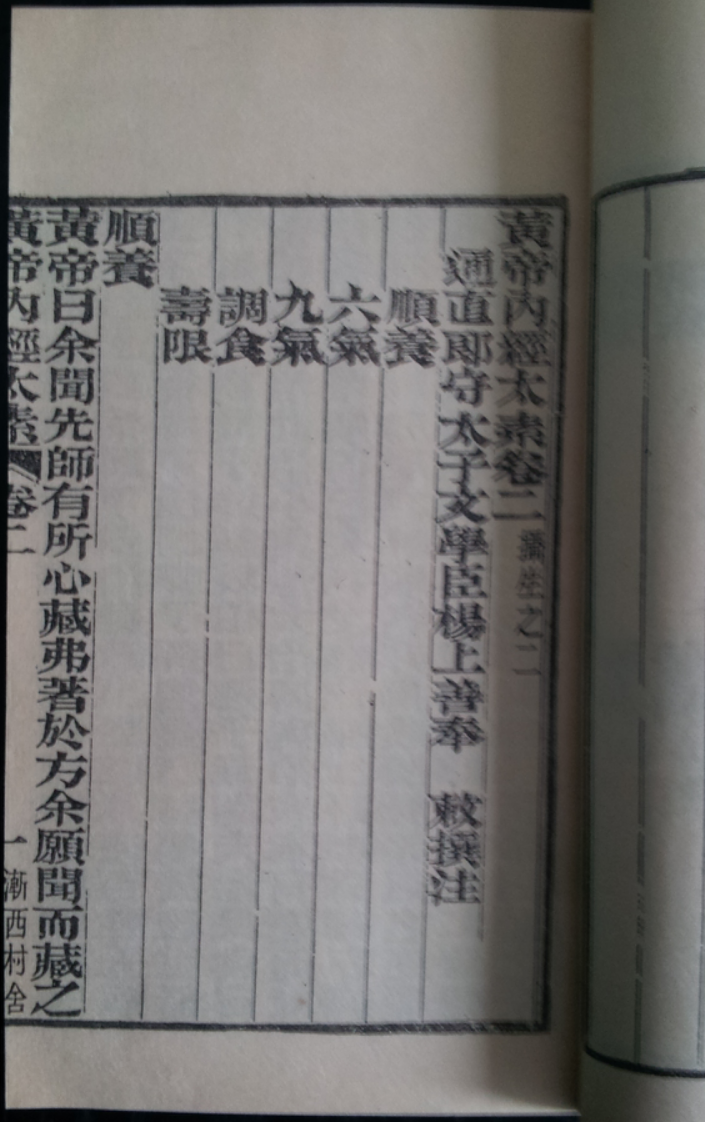 黃帝內經太素卷二 攝生之二
通直郎守太子文學臣楊上善奉 敕撰注
順養
六氣
九氣
調食
壽限
順養
黃帝曰余聞先師有所心藏弗著於方余願聞而藏之
黃帝內經太素 卷二 一 漸西村舍